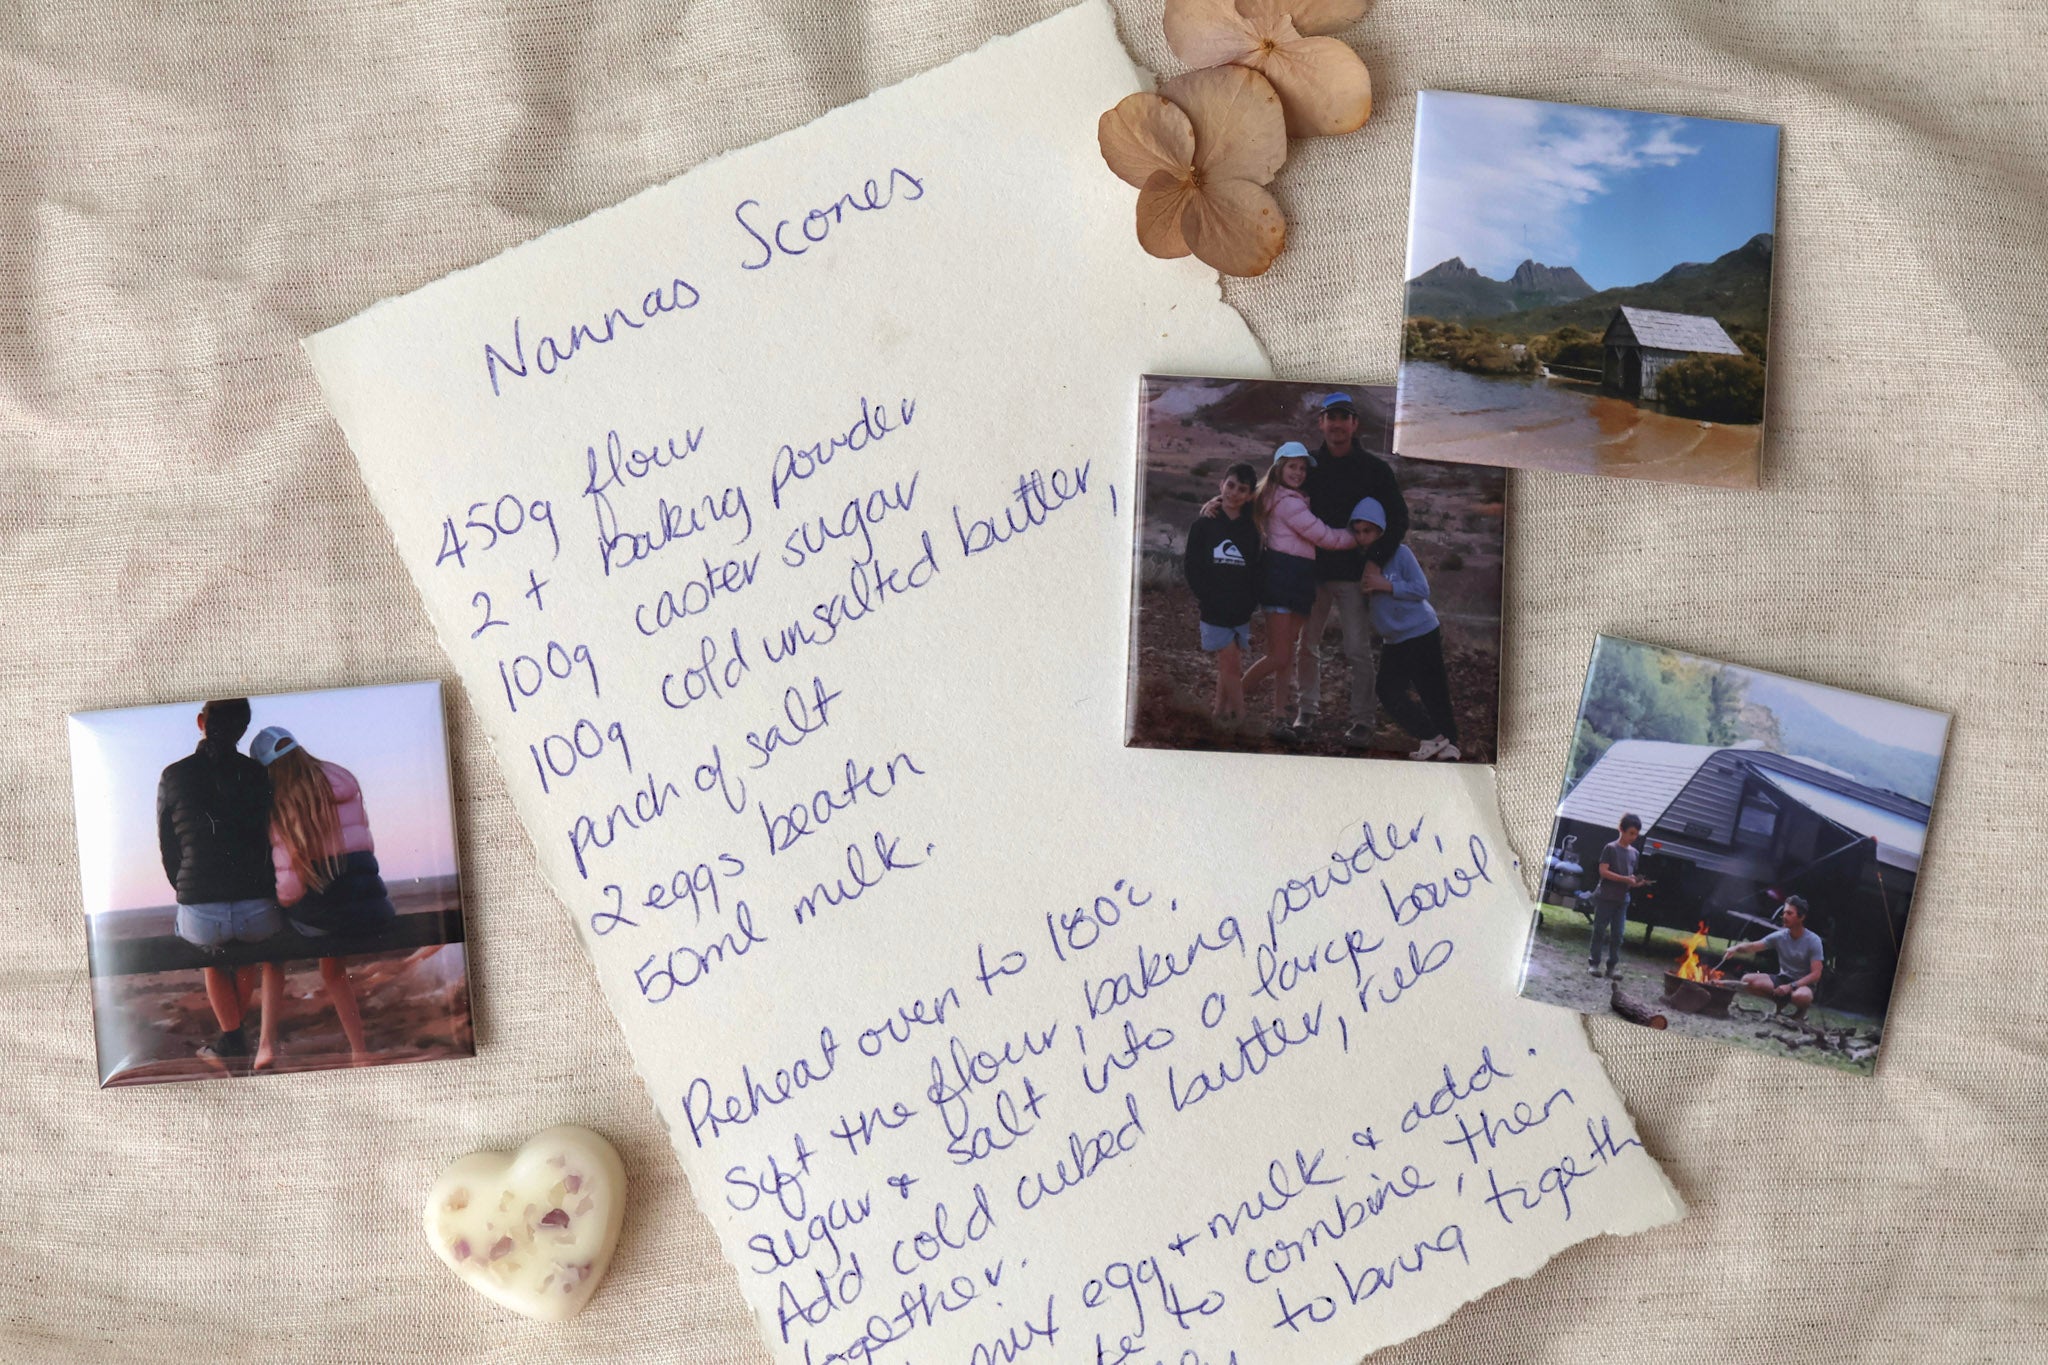 Nannas Scones
450g flour
2 t baking powder
100g caster sugar
100g cold unsalted butter,
pinch of salt
2 eggs beaten
50ml milk.
Preheat oven to 180°c.
Sift the flour, baking powder,
sugar & salt into a large bowl.
Add cold cubed butter, rub
together.
mix egg + milk & add.
to combine, then
to bring togeth